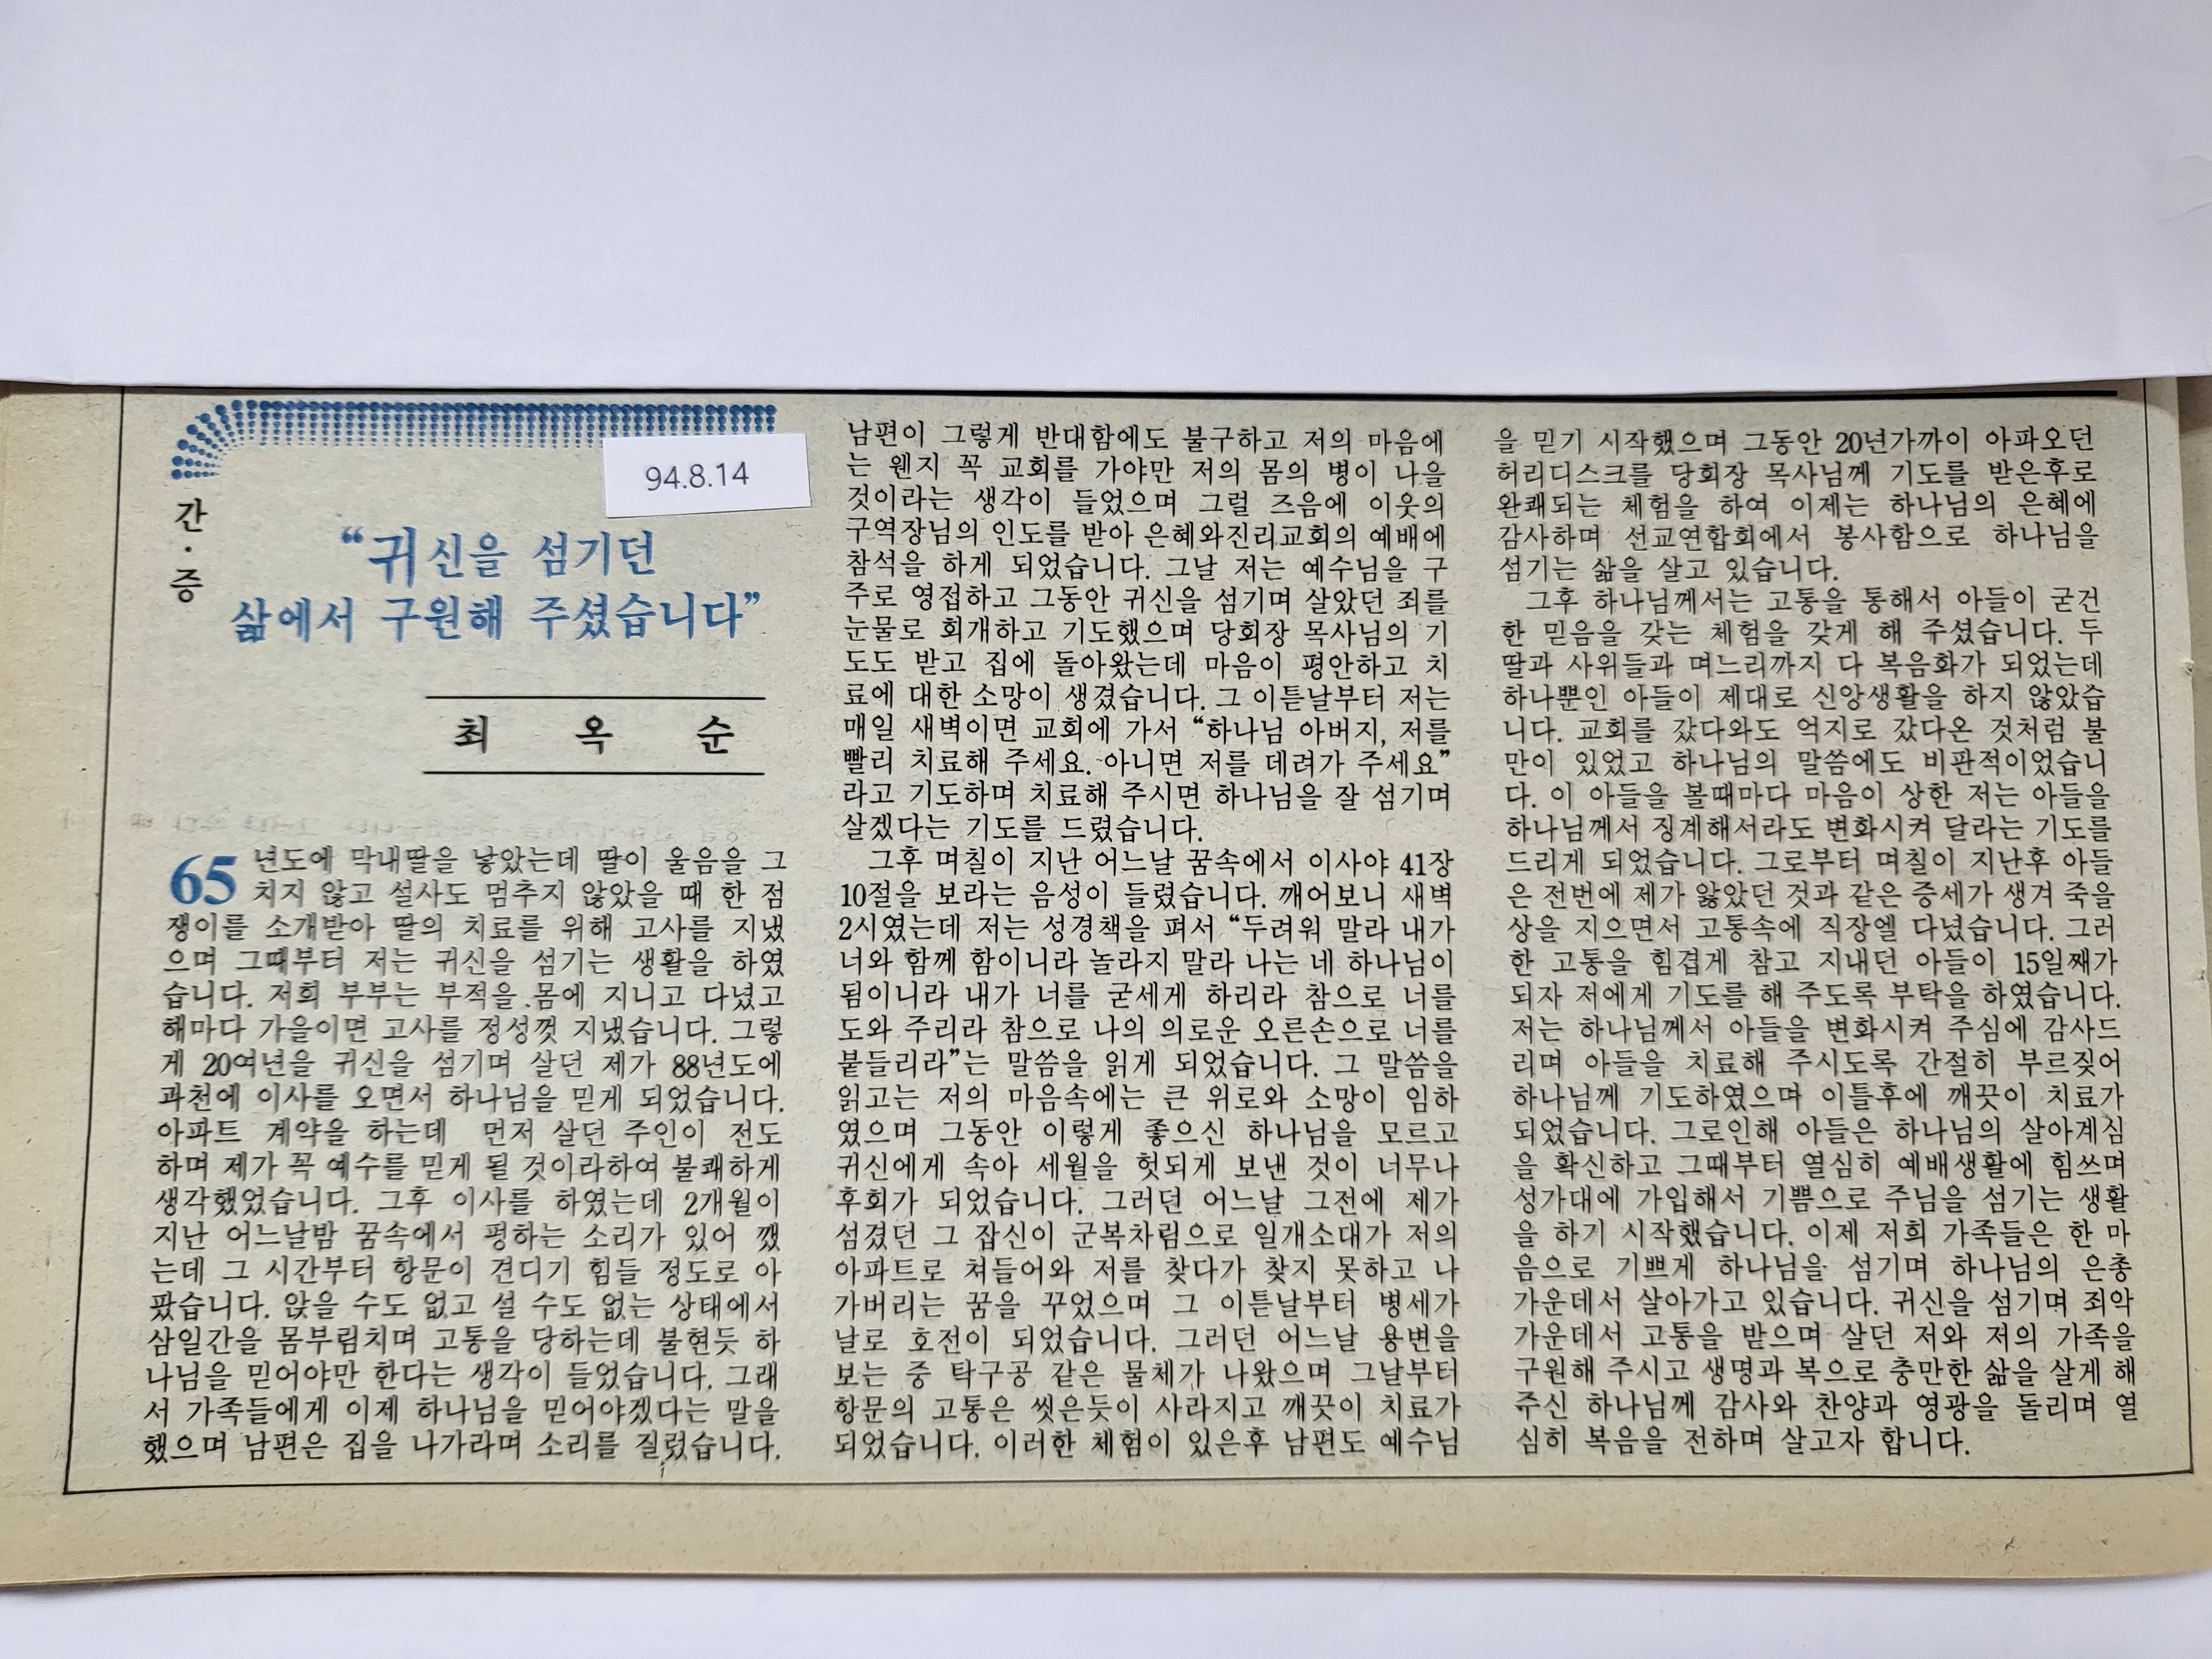 94.8.14
간·증
“귀신을 섬기던
삶에서 구원해 주셨습니다”
최 옥 순
65년도에 막내딸을 낳았는데 딸이 울음을 그
치지 않고 설사도 멈추지 않았을 때 한 점
쟁이를 소개받아 딸의 치료를 위해 고사를 지냈
으며 그때부터 저는 귀신을 섬기는 생활을 하였
습니다. 저희 부부는 부적을 몸에 지니고 다녔고
해마다 가을이면 고사를 정성껏 지냈습니다. 그렇
게 20여년을 귀신을 섬기며 살던 제가 88년도에
과천에 이사를 오면서 하나님을 믿게 되었습니다.
아파트 계약을 하는데 먼저 살던 주인이 전도
하며 제가 꼭 예수를 믿게 될 것이라하여 불쾌하게
생각했었습니다. 그후 이사를 하였는데 2개월이
지난 어느날밤 꿈속에서 펑하는 소리가 있어 깼
는데 그 시간부터 항문이 견디기 힘들 정도로 아
팠습니다. 앉을 수도 없고 설 수도 없는 상태에서
삼일간을 몸부림치며 고통을 당하는데 불현듯 하
나님을 믿어야만 한다는 생각이 들었습니다. 그래
서 가족들에게 이제 하나님을 믿어야겠다는 말을
했으며 남편은 집을 나가라며 소리를 질렀습니다.
남편이 그렇게 반대함에도 불구하고 저의 마음에
는 웬지 꼭 교회를 가야만 저의 몸의 병이 나을
것이라는 생각이 들었으며 그럴 즈음에 이웃의
구역장님의 인도를 받아 은혜와진리교회의 예배에
참석을 하게 되었습니다. 그날 저는 예수님을 구
주로 영접하고 그동안 귀신을 섬기며 살았던 죄를
눈물로 회개하고 기도했으며 당회장 목사님의 기
도도 받고 집에 돌아왔는데 마음이 평안하고 치
료에 대한 소망이 생겼습니다. 그 이튿날부터 저는
매일 새벽이면 교회에 가서 “하나님 아버지, 저를
빨리 치료해 주세요. 아니면 저를 데려가 주세요”
라고 기도하며 치료해 주시면 하나님을 잘 섬기며
살겠다는 기도를 드렸습니다.
그후 며칠이 지난 어느날 꿈속에서 이사야 41장
10절을 보라는 음성이 들렸습니다. 깨어보니 새벽
2시였는데 저는 성경책을 펴서 “두려워 말라 내가
너와 함께 함이니라 놀라지 말라 나는 네 하나님이
됨이니라 내가 너를 굳세게 하리라 참으로 너를
도와 주리라 참으로 나의 의로운 오른손으로 너를
붙들리라”는 말씀을 읽게 되었습니다. 그 말씀을
읽고는 저의 마음속에는 큰 위로와 소망이 임하
였으며 그동안 이렇게 좋으신 하나님을 모르고
귀신에게 속아 세월을 헛되게 보낸 것이 너무나
후회가 되었습니다. 그러던 어느날 그전에 제가
섬겼던 그 잡신이 군복차림으로 일개소대가 저의
아파트로 쳐들어와 저를 찾다가 찾지 못하고 나
가버리는 꿈을 꾸었으며 그 이튿날부터 병세가
날로 호전이 되었습니다. 그러던 어느날 용변을
보는 중 탁구공 같은 물체가 나왔으며 그날부터
항문의 고통은 씻은듯이 사라지고 깨끗이 치료가
되었습니다. 이러한 체험이 있은후 남편도 예수님
을 믿기 시작했으며 그동안 20년가까이 아파오던
허리디스크를 당회장 목사님께 기도를 받은후로
완쾌되는 체험을 하여 이제는 하나님의 은혜에
감사하며 선교연합회에서 봉사함으로 하나님을
섬기는 삶을 살고 있습니다.
그후 하나님께서는 고통을 통해서 아들이 굳건
한 믿음을 갖는 체험을 갖게 해 주셨습니다. 두
딸과 사위들과 며느리까지 다 복음화가 되었는데
하나뿐인 아들이 제대로 신앙생활을 하지 않았습
니다. 교회를 갔다와도 억지로 갔다온 것처럼 불
만이 있었고 하나님의 말씀에도 비판적이었습니
다. 이 아들을 볼때마다 마음이 상한 저는 아들을
하나님께서 징계해서라도 변화시켜 달라는 기도를
드리게 되었습니다. 그로부터 며칠이 지난후 아들
은 전번에 제가 앓았던 것과 같은 증세가 생겨 죽을
상을 지으면서 고통속에 직장엘 다녔습니다. 그러
한 고통을 힘겹게 참고 지내던 아들이 15일째가
되자 저에게 기도를 해 주도록 부탁을 하였습니다.
저는 하나님께서 아들을 변화시켜 주심에 감사드
리며 아들을 치료해 주시도록 간절히 부르짖어
하나님께 기도하였으며 이틀후에 깨끗이 치료가
되었습니다. 그로인해 아들은 하나님의 살아계심
을 확신하고 그때부터 열심히 예배생활에 힘쓰며
성가대에 가입해서 기쁨으로 주님을 섬기는 생활
을 하기 시작했습니다. 이제 저희 가족들은 한 마
음으로 기쁘게 하나님을 섬기며 하나님의 은총
가운데서 살아가고 있습니다. 귀신을 섬기며 죄악
가운데서 고통을 받으며 살던 저와 저의 가족을
구원해 주시고 생명과 복으로 충만한 삶을 살게 해
주신 하나님께 감사와 찬양과 영광을 돌리며 열
심히 복음을 전하며 살고자 합니다.